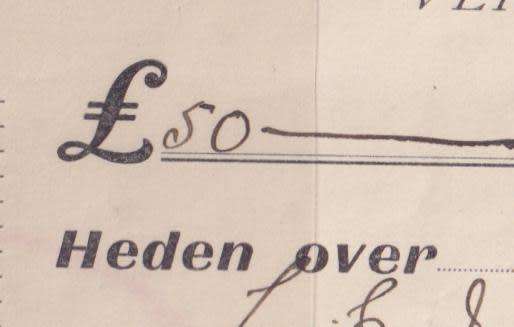 £50
Heden over